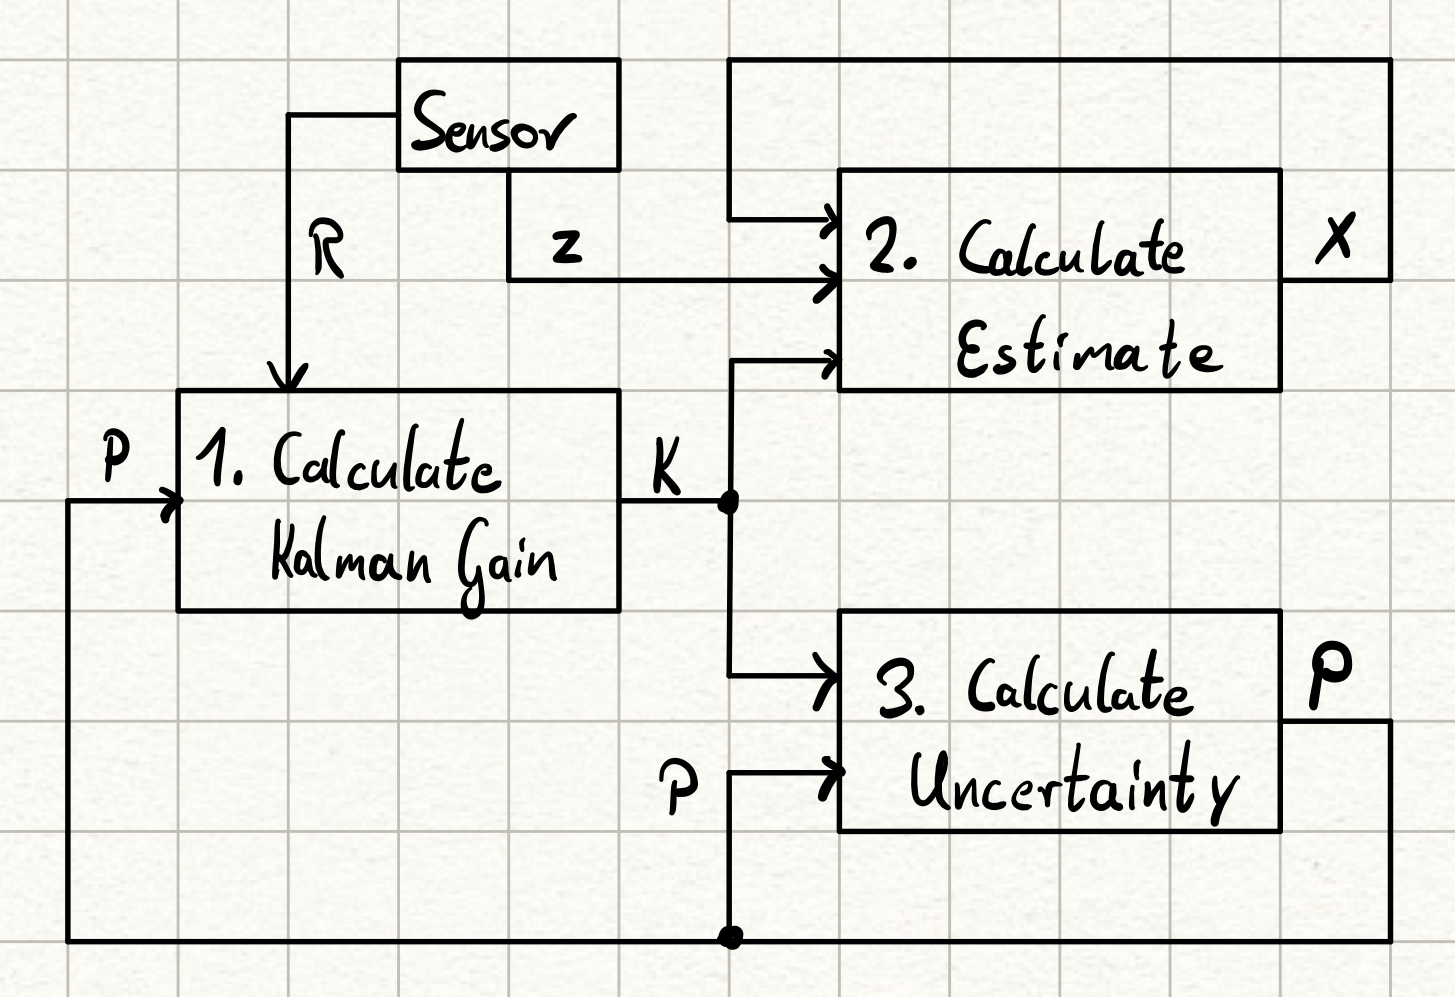 Sensor
R
z
2. Calculate
Estimate
X
P
1. Calculate
Kalman Gain
K
3. Calculate
Uncertainty
P
P